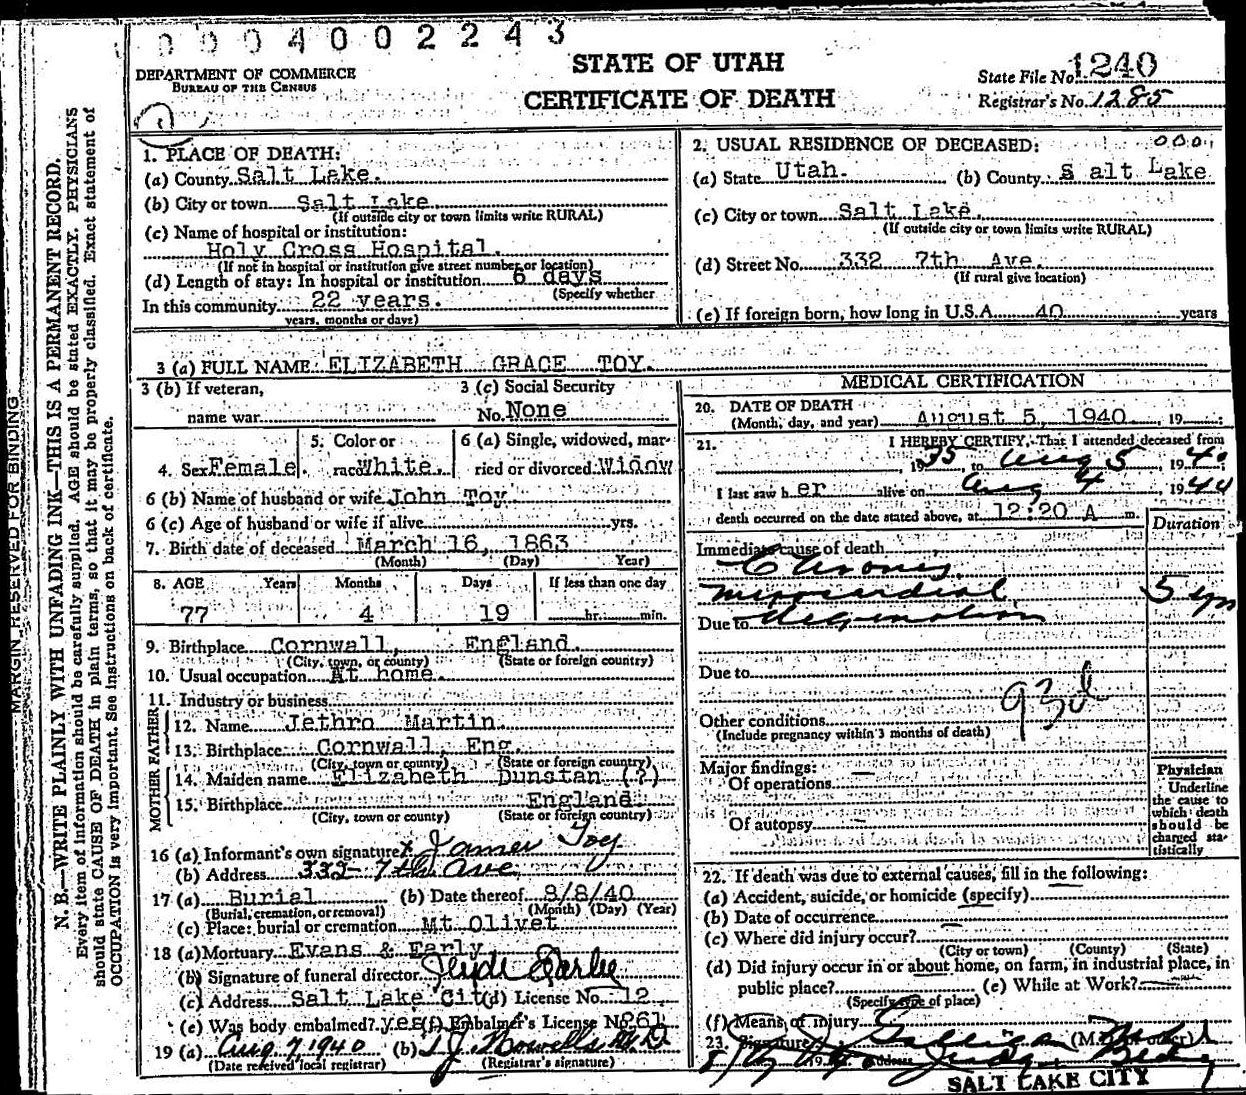 0 0 0 4 0 0 2 2 4 3
STATE OF UTAH
CERTIFICATE OF DEATH
DEPARTMENT OF COMMERCE
BUREAU OF THE CENSUS
State File No. 1240
Registrar's No. 1285
MARGIN RESERVED FOR BINDING
N. B.—WRITE PLAINLY WITH UNFADING INK—THIS IS A PERMANENT RECORD.
Every item of information should be carefully supplied. AGE should be stated EXACTLY. PHYSICIANS
should state CAUSE OF DEATH in plain terms, so that it may be properly classified. Exact statement of
OCCUPATION is very important. See instructions on back of certificate.
1. PLACE OF DEATH:
(a) County Salt Lake.
(b) City or town Salt Lake
(If outside city or town limits write RURAL)
(c) Name of hospital or institution:
Holy Cross Hospital.
(If not in hospital or institution give street number or location)
(d) Length of stay: In hospital or institution 6 days
(Specify whether
In this community 22 years.
years, months or days)
2. USUAL RESIDENCE OF DECEASED: 000
(a) State Utah. (b) County S alt Lake
(c) City or town Salt Lake.
(If outside city or town limits write RURAL)
(d) Street No. 332 7th Ave.
(If rural give location)
(e) If foreign born, how long in U.S.A. 40 years
3 (a) FULL NAME: ELIZABETH GRACE TOY.
3 (b) If veteran,
name war
3 (c) Social Security
No. None
4. Sex Female. 5. Color or race White. 6 (a) Single, widowed, married or divorced: Widow
6 (b) Name of husband or wife John Toy
6 (c) Age of husband or wife if alive yrs.
7. Birth date of deceased March 16, 1863
(Month) (Day) Year)
8. AGE Years Months Days If less than one day
77 4 19 hr. min.
9. Birthplace Cornwall, England.
(City, town, or county) (State or foreign country)
10. Usual occupation At home.
11. Industry or business
FATHER
12. Name Jethro Martin
13. Birthplace Cornwall, Eng.
(City, town or county) (State or foreign country)
MOTHER
14. Maiden name Elizabeth Dunstan (?)
15. Birthplace England.
(City, town or county) (State or foreign country)
16 (a) Informant's own signature x James Toy
(b) Address 332 7th Ave
17 (a) Burial (b) Date thereof 8/8/40
(Burial, cremation, or removal) (Month) (Day) (Year)
(c) Place: burial or cremation Mt Olivet
18 (a) Mortuary Evans & Early
(b) Signature of funeral director
(c) Address Salt Lake City (d) License No. 12
(e) Was body embalmed? yes (f) Embalmer's License No. 261
19 (a) Aug 7, 1940 (b) T. J. Howells M.D.
(Date received local registrar) (Registrar's signature)
MEDICAL CERTIFICATION
20. DATE OF DEATH
(Month, day, and year) August 5, 1940, 19
21. I HEREBY CERTIFY, That I attended deceased from
1935, to Aug 5, 1940;
I last saw h er alive on Aug 4, 1940
death occurred on the date stated above, at 12:20 A m.
Duration
Immediate cause of death
Chronic
myocardial 5 yrs
Due to degeneration
Due to
93d
Other conditions
(Include pregnancy within 3 months of death)
Major findings:
Of operations
Of autopsy
Physician
Underline
the cause to
which death
should be
charged statistically
22. If death was due to external causes, fill in the following:
(a) Accident, suicide, or homicide (specify)
(b) Date of occurrence
(c) Where did injury occur?
(City or town) (County) (State)
(d) Did injury occur in or about home, on farm, in industrial place, in
public place? (e) While at Work?
(Specify type of place)
(f) Means of injury
23. Signature (M.D. or other)
Address Judge Bldg
SALT LAKE CITY